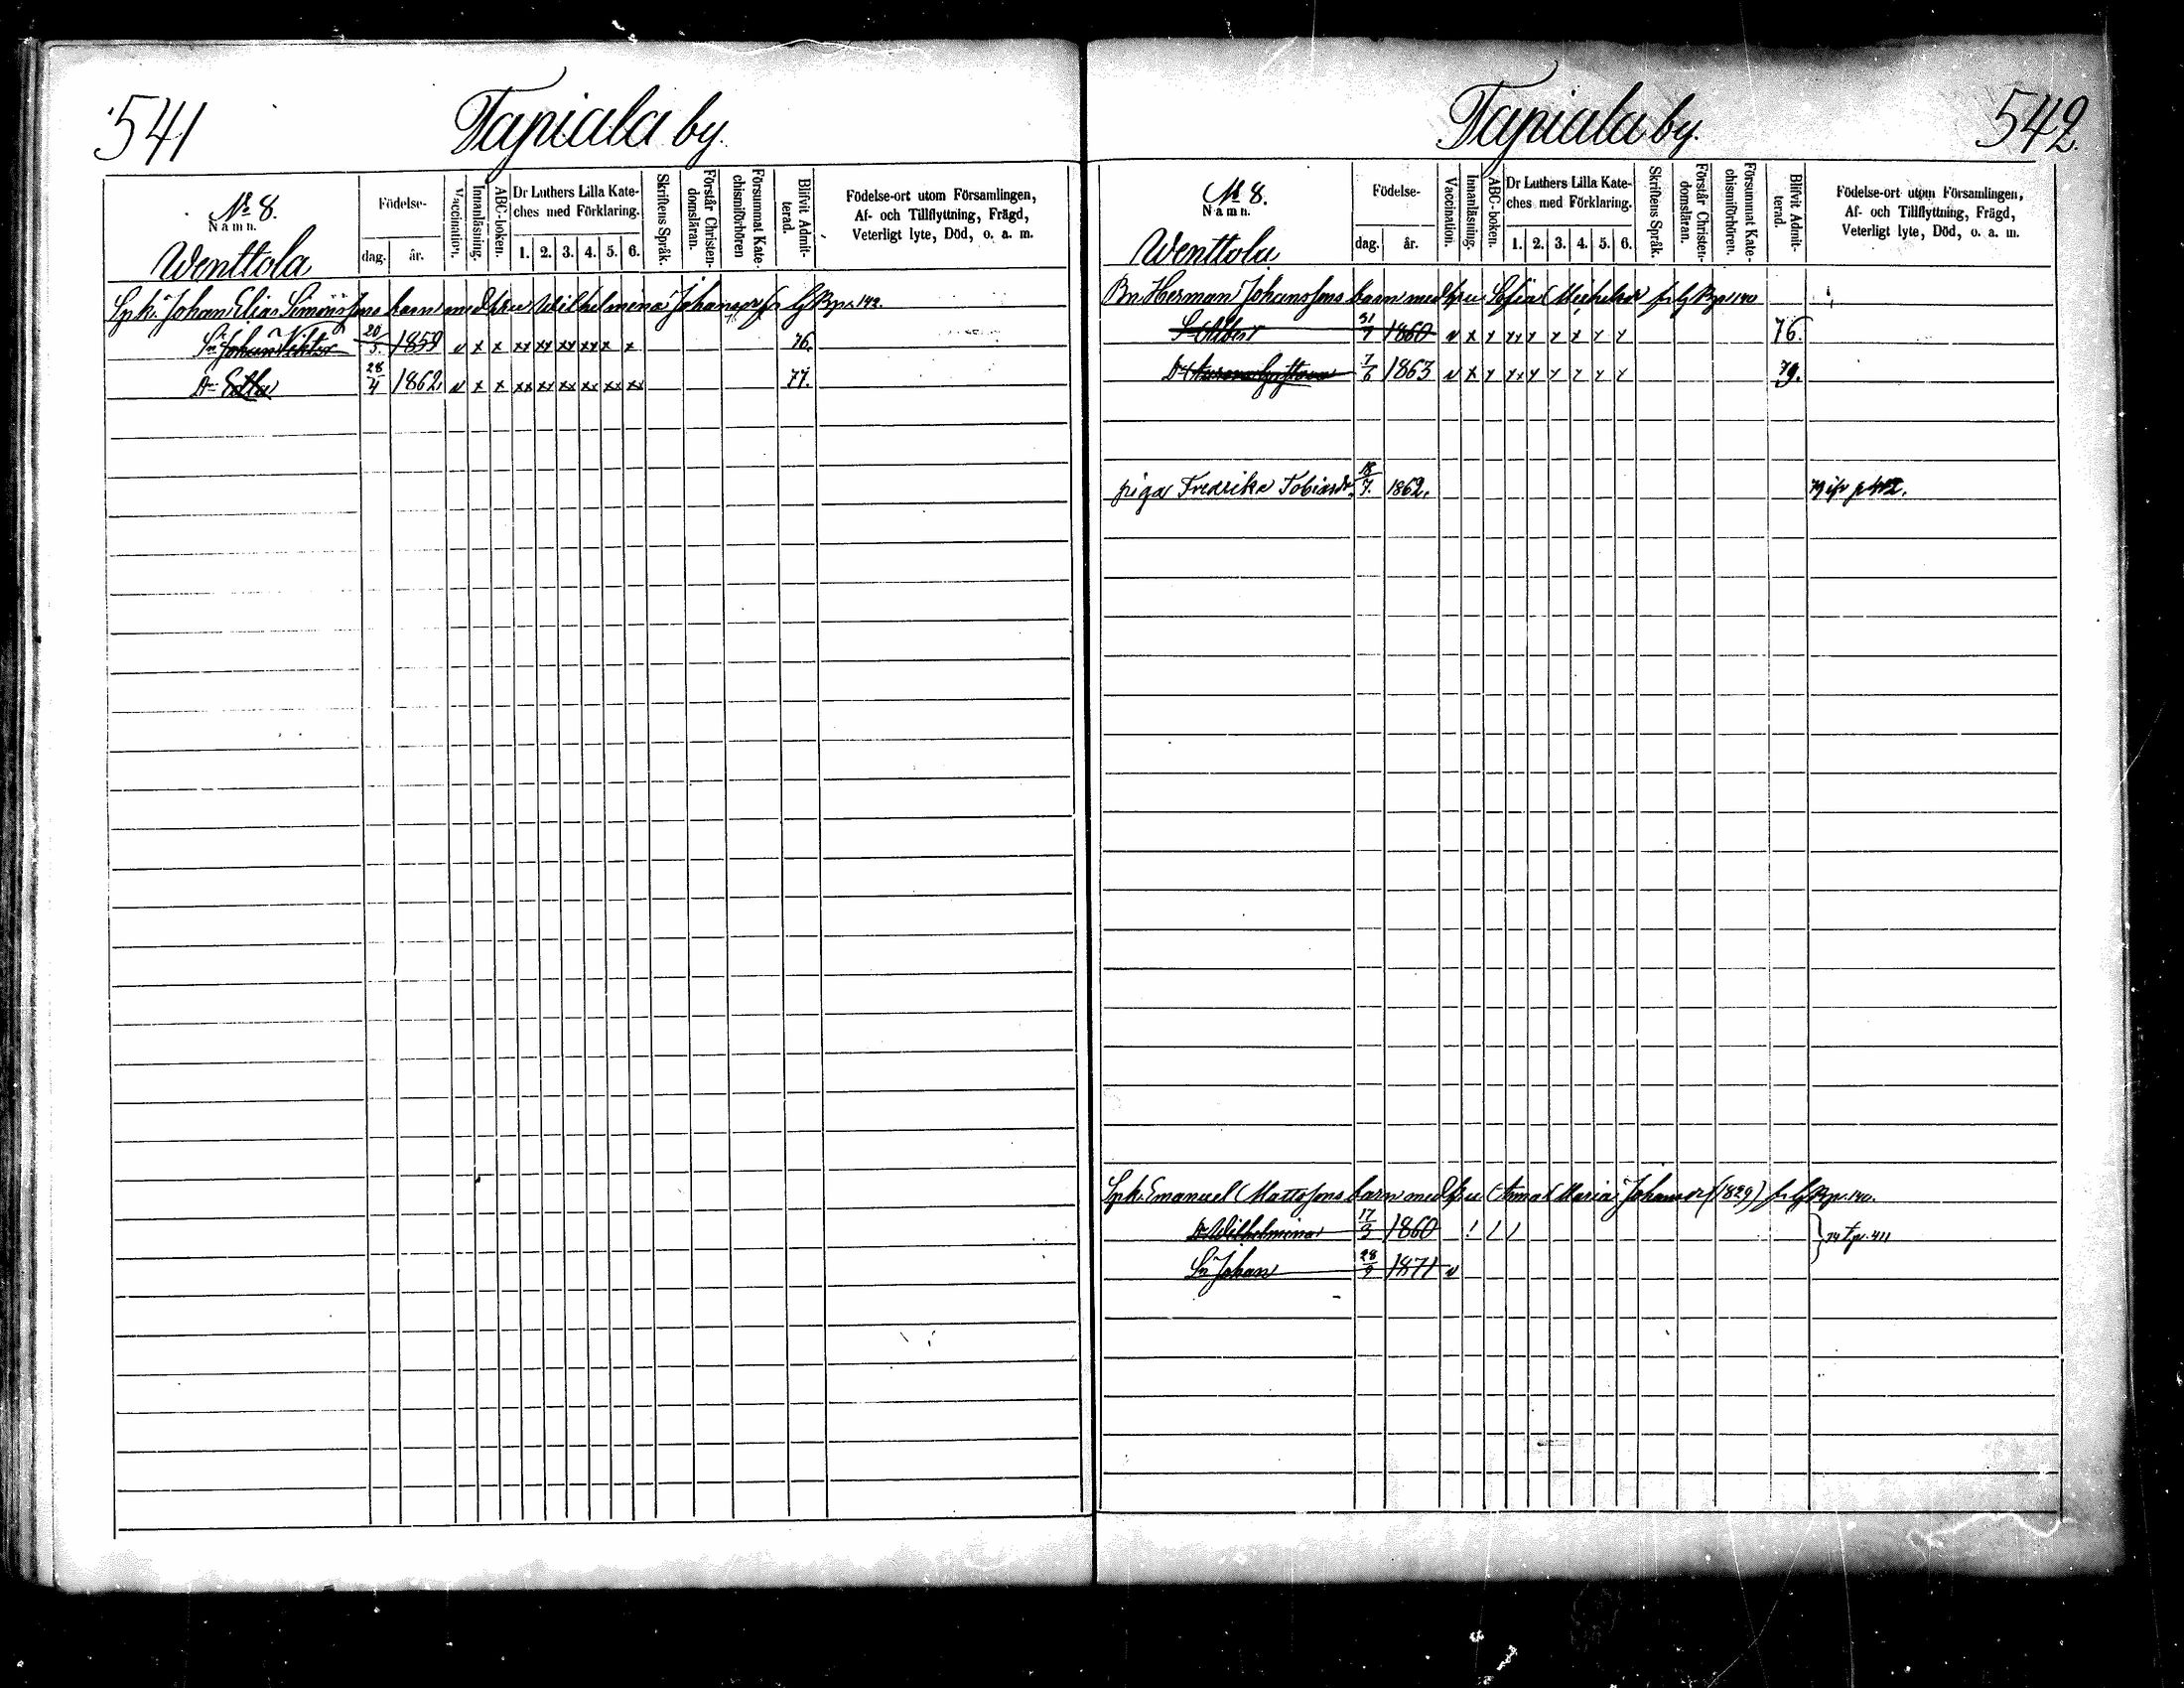 541
Tapiala by.
No 8.
Namn.
Wenttola
Födelse-
dag.
år.
Vaccination.
Innanläsning.
ABC-boken.
Dr Luthers Lilla Kate-
ches med Förklaring.
1. 2. 3. 4. 5. 6.
Skriftens Språk.
Förstår Christen-
domsläran.
Försummat Kate-
chismiförhören
Blifvit Admit-
terad.
Födelse-ort utom Församlingen,
Af- och Tillflyttning, Frägd,
Veterligt lyte, Död, o. a. m.
Johan Elias Simonssons barn med hru Wilhelmina Johansdr fr 142.
Sn Johan Viktor 20/5. 1859 v x x xx xx xx xx x x 76.
Dr Edla 28/4 1862. v x x xx xx xx xx xx xx 77.
Tapiala by.
542.
No 8.
Namn.
Wenttola
Födelse-
dag.
år.
Vaccination.
Innanläsning.
ABC-boken.
Dr Luthers Lilla Kate-
ches med Förklaring.
1. 2. 3. 4. 5. 6.
Skriftens Språk.
Förstår Christen-
domsläran.
Försummat Kate-
chismiförhören.
Blifvit Admit-
terad.
Födelse-ort utom Församlingen,
Af- och Tillflyttning, Frägd,
Veterligt lyte, Död, o. a. m.
Bn. Herman Johanssons barn med hru Sofia Michelsdr fr 140
S Albert 31/7 1860 v x x xx x x x x x 76.
Dr Gustava 7/6 1863 v x x xx x x x x x 79.
piga Fredrika Tobiasdr. 18/7. 1862.
Emanuel Mattssons barn med hru Anna Maria Johansdr (1829) fr 140.
Dr Wilhelmina 17/3 1860
74 p. 411
Sn Johan 28/9 1871 v